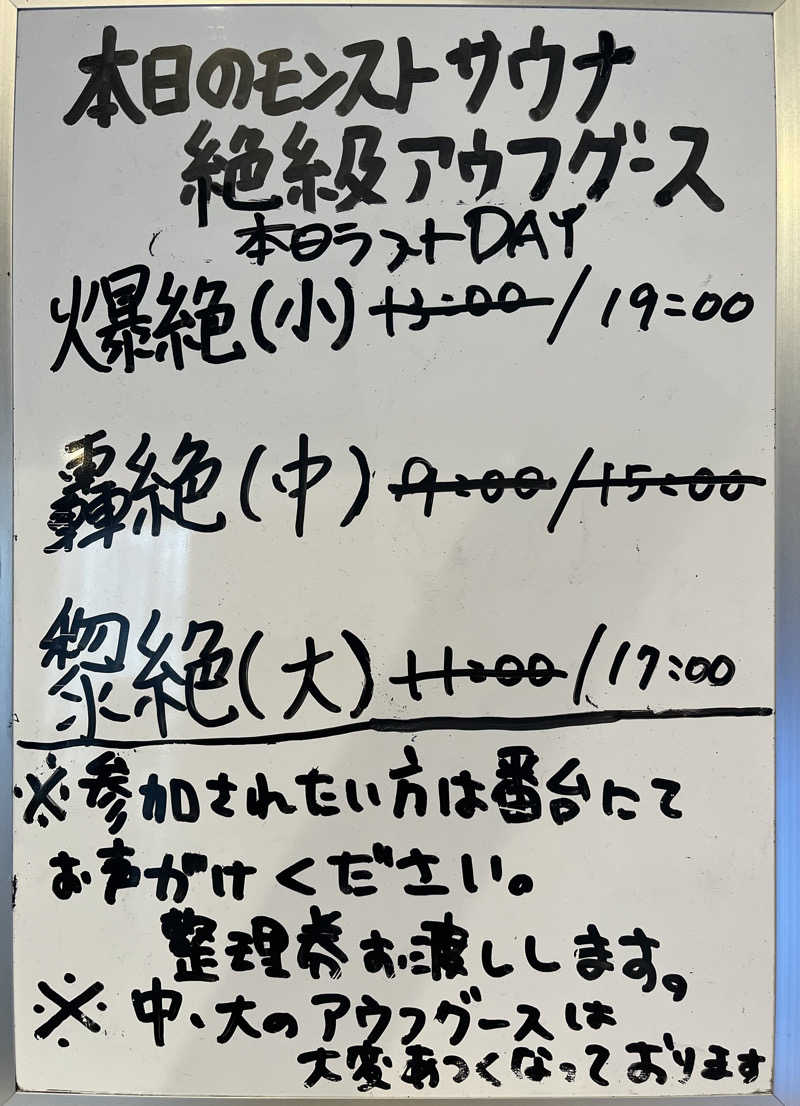 本日のモンストサウナ
絶級アウフグース
本日ラストDAY
爆絶(小) 13:00 / 19:00
轟絶(中) 9:00 / 15:00
黎絶(大) 11:00 / 17:00
※参加されたい方は番台にて
お声がけください。
整理券お渡しします。
※中、大のアウフグースは
大変あつくなっております